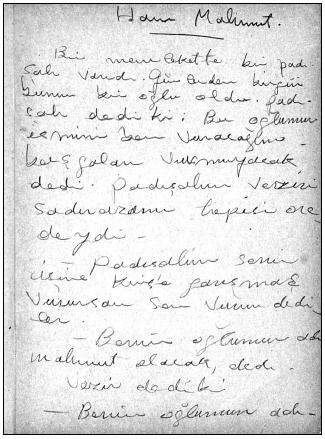 Han Mahmut.
Bir memlekette bir padi
şah vardı. Günlerden birgün
bunun bir oğlu oldu. padi
şah dedi ki: Bu oğlumun
ismini ben vuracağım
başgaları vurmuyacak
dedi. Padişahın veziri
sadırazamı hepisi ora
deydi -
- Padişahım senin
işine kimse garışmaz
vurursan sen vurun dedi
ler.
- Benim oğlumun adı
mahmut olacak, dedi.
Vezir dedi ki
- Benim oğlumun adı -